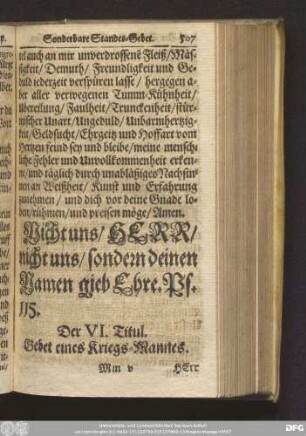 Sonderbare Standes-Gebet. 507
tel auch an mir unverdrossenē Fleiß/Mäs-
sigkeit/ Demuth/ Freundligkeit und Ge-
duld iederzeit verspüren lasse/ hergegen a-
ber aller verwegenen Tumm-Kühnheit/
übereilung/ Faulheit/ Trunckenheit/ stür-
mischer Unart/Ungeduld/ Unbarmhertzig-
keit/Geldsucht/Ehrgeitz und Hoffart vom
Hertzen feind sey und bleibe/meine mensch-
liche Fehler und Unvollkommenheit erken-
ne/und täglich durch unabläßiges Nachsin-
nen an Weißheit/ Kunst und Erfahrung
zunehmen/ und dich vor deine Gnade lo-
ben/rühmen/und preisen möge/Amen.
Nicht uns/ HERR/
nicht uns/ sondern deinen
Namen gieb Ehre. Ps.
115.
Der VI. Titul.
Gebet eines Kriegs-Mannes.
Mm v HErr